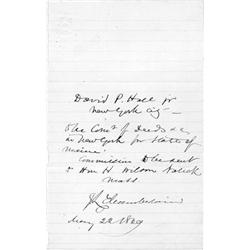 David P. Hall jr
New York City —
to be Com'r of Deeds &c
in New York for State of
Maine
Commission to be sent
to Wm H. Wilson
May 22 1869